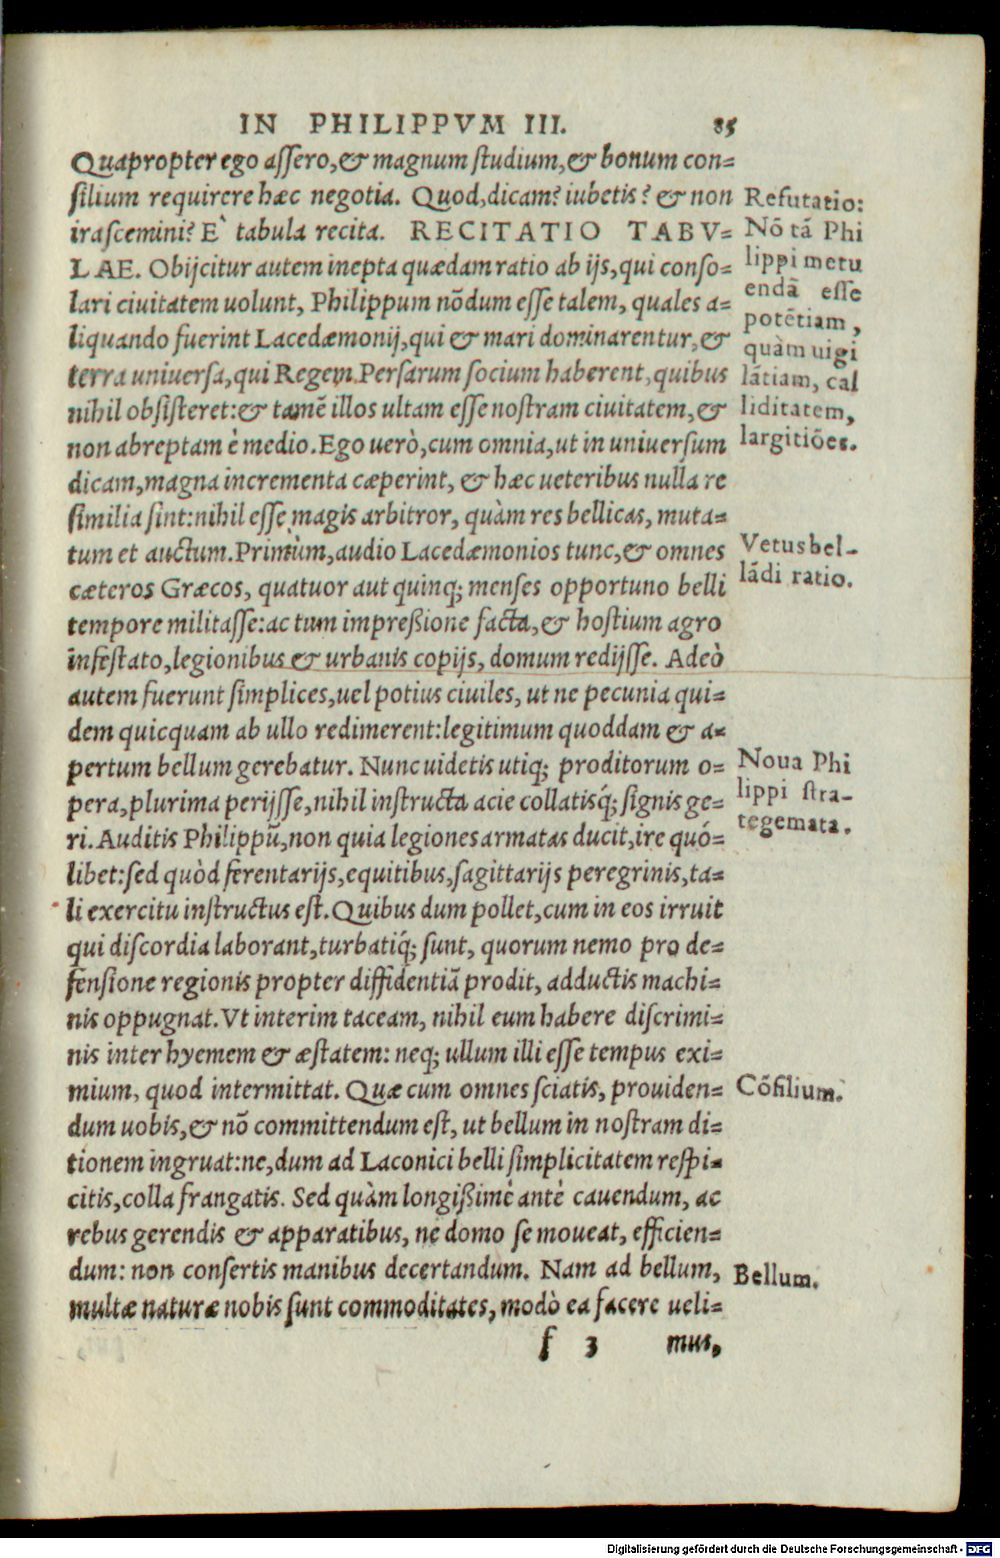 IN PHILIPPVM III. 85
Quapropter ego assero,& magnum studium,& bonum con=
silium requirere hæc negotia. Quod,dicam? iubetis? & non
irascemini? E` tabula recita. RECITATIO TABV=
LAE. Obijcitur autem inepta quædam ratio ab ijs,qui conso=
lari ciuitatem uolunt, Philippum nōdum esse talem, quales a=
liquando fuerint Lacedæmonij,qui & mari dominarentur,&
terra uniuersa,qui Regem Persarum socium haberent,quibus
nihil obsisteret:& tamē illos ultam esse nostram ciuitatem,&
non abreptam è medio.Ego uerò,cum omnia,ut in uniuersum
dicam,magna incrementa cæperint, & hæc ueteribus nulla re
similia sint:nihil esse magis arbitror, quàm res bellicas, muta=
tum et auctum.Primùm,audio Lacedæmonios tunc,& omnes
cæteros Græcos, quatuor aut quinq; menses opportuno belli
tempore militasse:ac tum impreßione facta,& hostium agro
infestato,legionibus & urbanis copijs, domum redijsse. Adeò
autem fuerunt simplices,uel potius ciuiles, ut ne pecunia qui=
dem quicquam ab ullo redimerent:legitimum quoddam & a=
pertum bellum gerebatur. Nunc uidetis utiq; proditorum o=
pera,plurima perijsse,nihil instructa acie collatisq́; signis ge=
ri.Auditis Philippū,non quia legiones armatas ducit,ire quó=
libet:sed quòd ferentarijs,equitibus,sagittarijs peregrinis,ta=
li exercitu instructus est.Quibus dum pollet,cum in eos irruit
qui discordia laborant,turbatiq́; sunt, quorum nemo pro de=
fensione regionis propter diffidentiā prodit, adductis machi=
nis oppugnat.Vt interim taceam, nihil eum habere discrimi=
nis inter hyemem & æstatem: neq; ullum illi esse tempus exi=
mium, quod intermittat. Quæ cum omnes sciatis, prouiden=
dum uobis,& nō committendum est, ut bellum in nostram di=
tionem ingruat:ne,dum ad Laconici belli simplicitatem respi=
citis,colla frangatis. Sed quàm longißimè antè cauendum, ac
rebus gerendis & apparatibus, ne domo se moueat, efficien=
dum: non consertis manibus decertandum. Nam ad bellum,
multæ naturæ nobis sunt commoditates, modò ea facere ueli=
f 3 mus,
Refutatio:
Nō tā Phi
lippi metu
endā esse
potētiam,
quàm uigi
lātiam, cal
liditatem,
largitiōes.
Vetus bel-
lādi ratio.
Noua Phi
lippi stra-
tegemata.
Cōsilium.
Bellum.
Digitalisierung gefördert durch die Deutsche Forschungsgemeinschaft - DFG